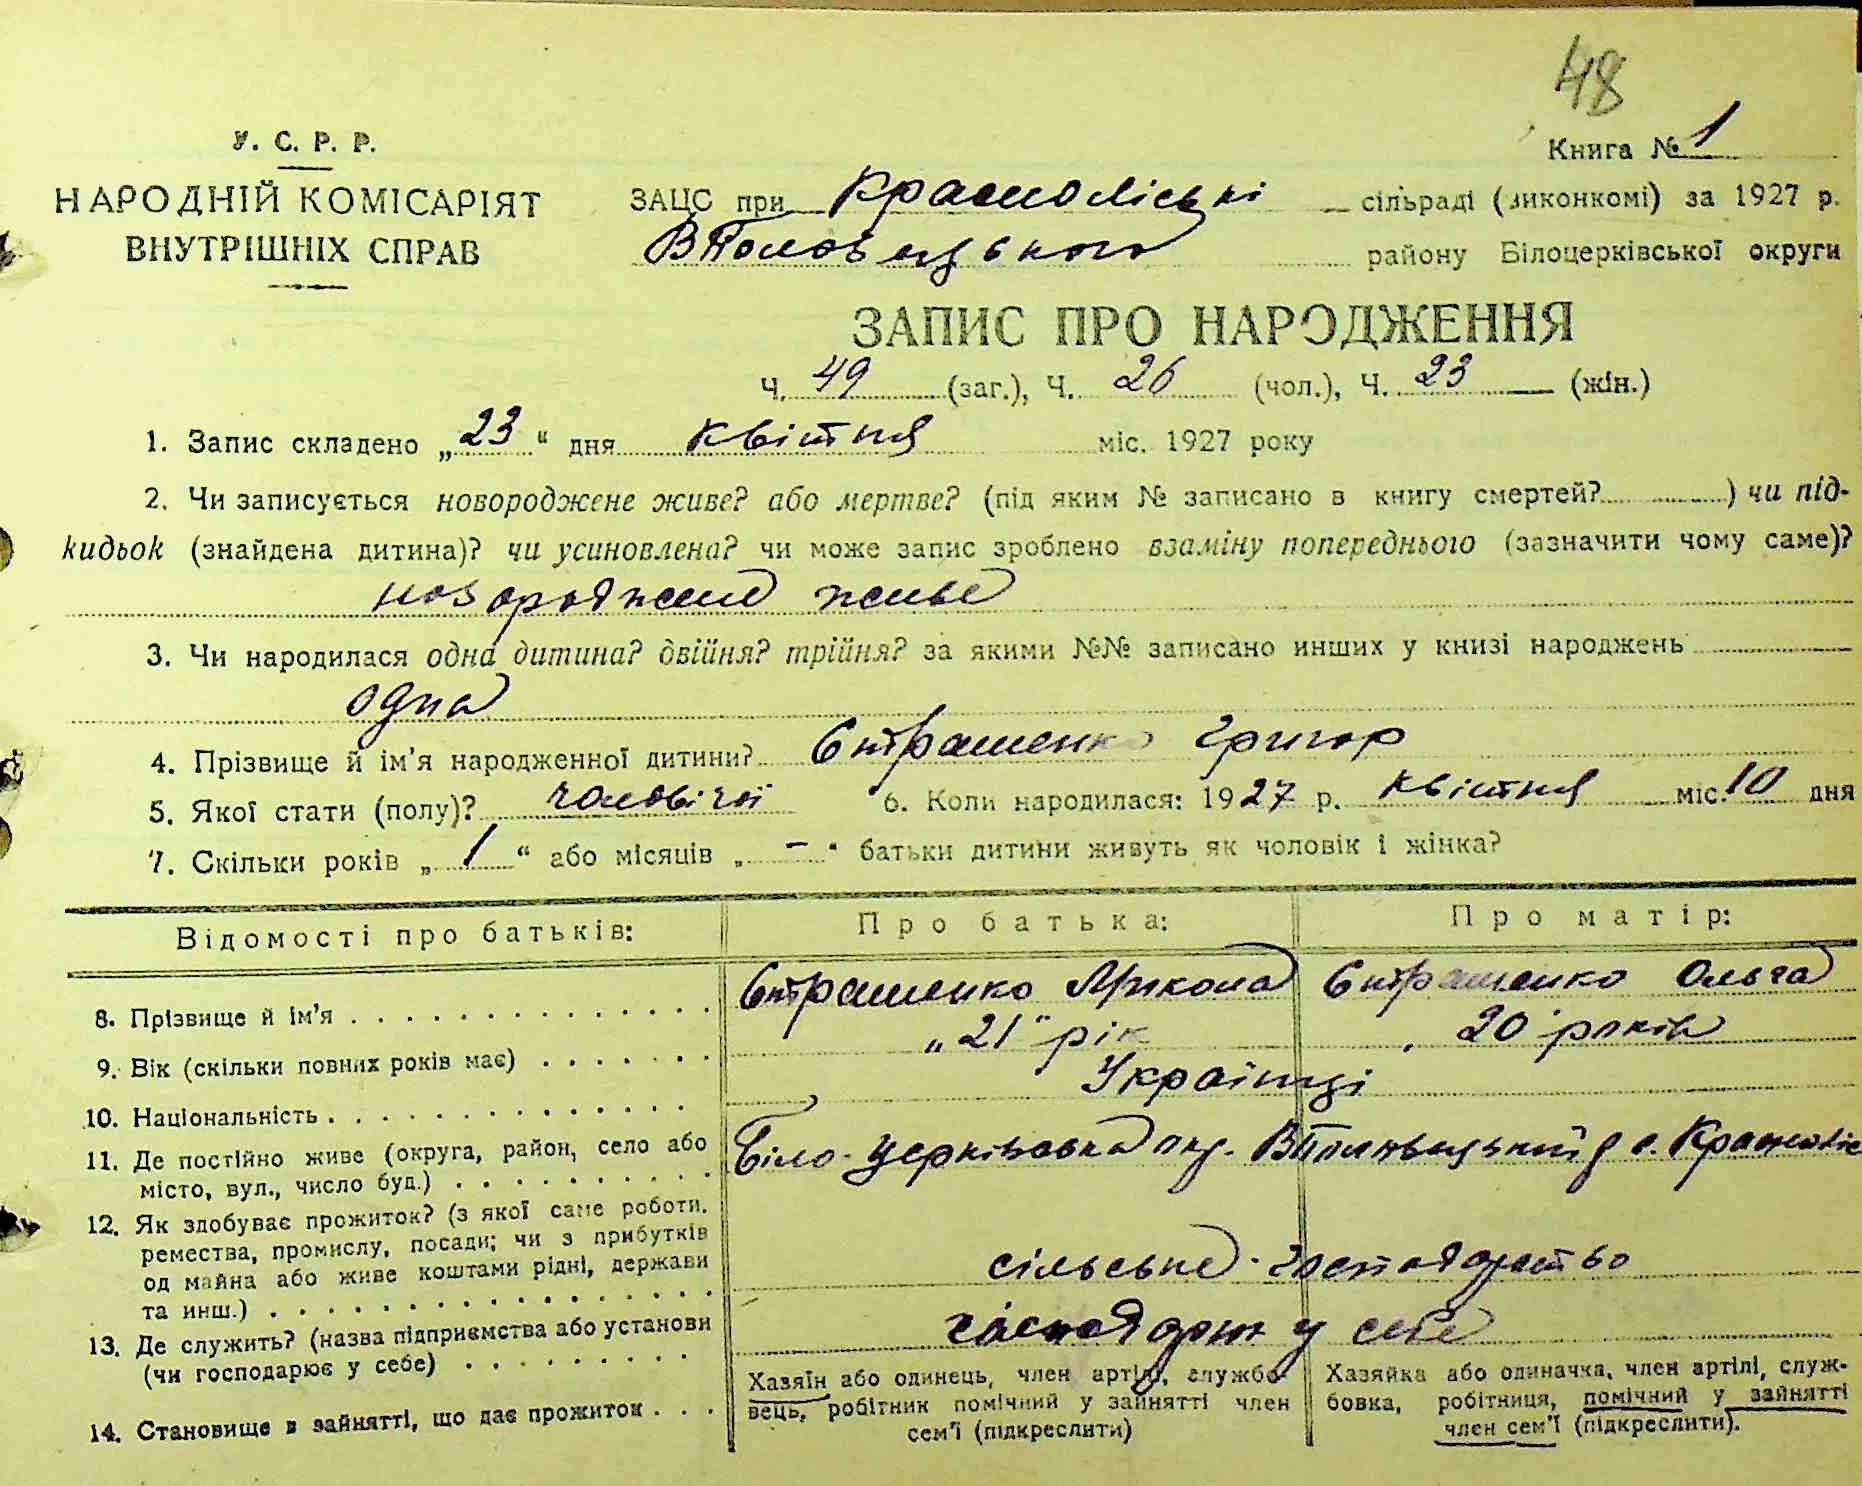 48
У. С. Р. Р.
Книга № 1
НАРОДНІЙ КОМІСАРІЯТ
ВНУТРІШНІХ СПРАВ
ЗАЦС при Краснолісські сільраді (виконкомі) за 1927 р.
ВПоловецького району Білоцерківської округи
ЗАПИС ПРО НАРОДЖЕННЯ
Ч. 49 (заг.), Ч. 26 (чол.), Ч. 23 (жін.)
1. Запис складено „23“ дня квітня міс. 1927 року
2. Чи записується новороджене живе? або мертве? (під яким № записано в книгу смертей?) чи під-
кидьок (знайдена дитина)? чи усиновлена? чи може запис зроблено взаміну попереднього (зазначити чому саме)?
новороджене живе
3. Чи народилася одна дитина? двійня? трійня? за якими №№ записано инших у книзі народжень
одна
4. Прізвище й ім'я народженної дитини? Страшенко Григор
5. Якої стати (полу)? чоловічої 6. Коли народилася: 1927 р. квітня міс. 10 дня
7. Скільки років „1“ або місяців „-“ батьки дитини живуть як чоловік і жінка?
Відомості про батьків: Про батька: Про матір:
8. Прізвище й ім'я Страшенко Микола Страшенко Ольга
9. Вік (скільки повних років має) „21“ рік 20 років
10. Національність Українці
11. Де постійно живе (округа, район, село або
місто, вул., число буд.) Біло-Церківська окр. ВПоловецький р с. Красноліс
12. Як здобуває прожиток? (з якої саме роботи,
ремества, промислу, посади; чи з прибутків
од майна або живе коштами рідні, держави
та инш.) сільське-господарство
13. Де служить? (назва підприємства або установи
(чи господарює у себе) господарют у себе
14. Становище в зайнятті, що дає прожиток
Хазяїн або одинець, член артілі, службо-
вець, робітник помічний у зайнятті член
сем'ї (підкреслити)
Хазяйка або одиначка, член артілі, служ-
бовка, робітниця, помічний у зайнятті
член сем'ї (підкреслити).